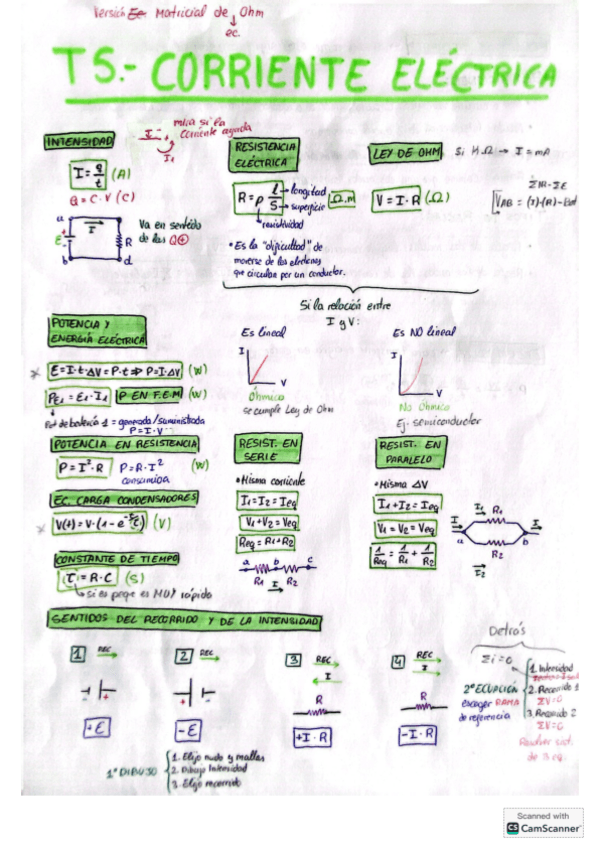 Versión Ec. Matricial de Ohm
ec.
T5.- CORRIENTE ELÉCTRICA
INTENSIDAD
mira si la
corriente ayuda
I₁
I = q/t (A)
Q = C · V (C)
a
c
I
E
R
b
d
Va en sentido
de las Q⊕
RESISTENCIA
ELÉCTRICA
R = ρ l/S
longitud
superficie
resistividad
Ω.m
• Es la "dificultad" de
moverse de los eletrones
que circulan por un conductor.
LEY DE OHM
Si K.Ω → I = mA
V = I · R (Ω)
Si la relación entre
I y V:
Es lineal
I
V
Óhmico
se cumple Ley de Ohm
Es NO lineal
I
V
No Óhmico
Ej. semiconductor
POTENCIA Y
ENERGÍA ELÉCTRICA
E=I·t·ΔV = P·t ⇒ P=I·ΔV (W)
PE₁ = E₁·I₁ P EN F.E.M (W)
Pot de batería 1 = generada/suministrada
P=I·V
POTENCIA EN RESISTENCIA
P = I²·R P=R·I² (W)
consumida
EC. CARGA CONDENSADORES
(V)
CONSTANTE DE TIEMPO
τ = R·C (S)
RESIST. EN
SERIE
• Misma corriente
I₁=I₂=Ieq
V₁+V₂=Veq
Req=R₁+R₂
a b c
R₁ I R₂
RESIST. EN
PARALELO
• Misma ΔV
I₁+I₂=Ieq
V₁=V₂=Veq
1/Req = 1/R₁ + 1/R₂
I₁ R₁
I
a
b
I
R₂
I₂
SENTIDOS DEL RECORRIDO Y DE LA INTENSIDAD
1 REC
+E
2 REC
-E
3 REC
I
R
+I·R
4 REC
I
R
-I·R
Detrás
Σi=0
2º ECUACIÓN
escoger RAMA
de referencia
1. Intensidad
2. Recorrido 1
ΣV=0
3. Recorrido 2
ΣV=0
Resolver sist.
de 3 eq.
1º DIBUJO
1. Elijo nudo y mallas
2. Dibujo Intensidad
3. Elijo recorrido
Scanned with
CS CamScanner